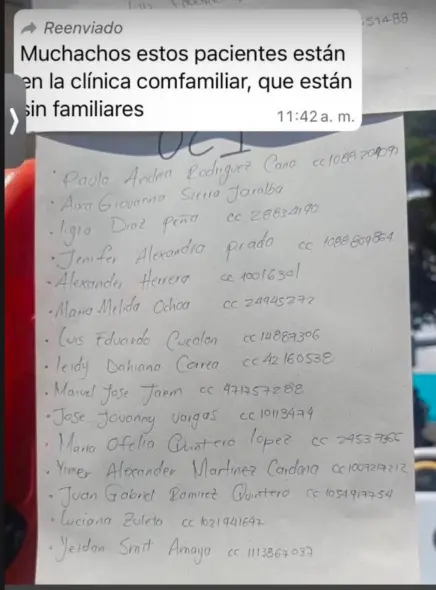 Reenviado
Muchachos estos pacientes están
en la clínica comfamiliar, que están
sin familiares
11:42 a. m.
51488
UCI
· Paula Andrea Rodriguez Cano cc
· Ana Giovanna Sierra Jaralba
· ligia Diaz Peña cc
· Jenifer Alexandra prado cc 1088809864
· Alexander Herrera cc 10016301
· Maria Melida Ochoa cc 24945272
· Luis Eduardo cc 14887306
· leidy Dahiana Correa cc 42160538
· Manuel Jose Jaem cc 471257288
· Jose Jovanny vargas cc 10113474
· Maria Ofelia Quintero lópez cc
· Yimer Alexander Martinez Cardona cc
· Juan Gabriel Ramirez Quintero cc 1054917754
· Luciana Zuleta cc 1021941642
· Yeidan Smit Amaya cc 1113867037